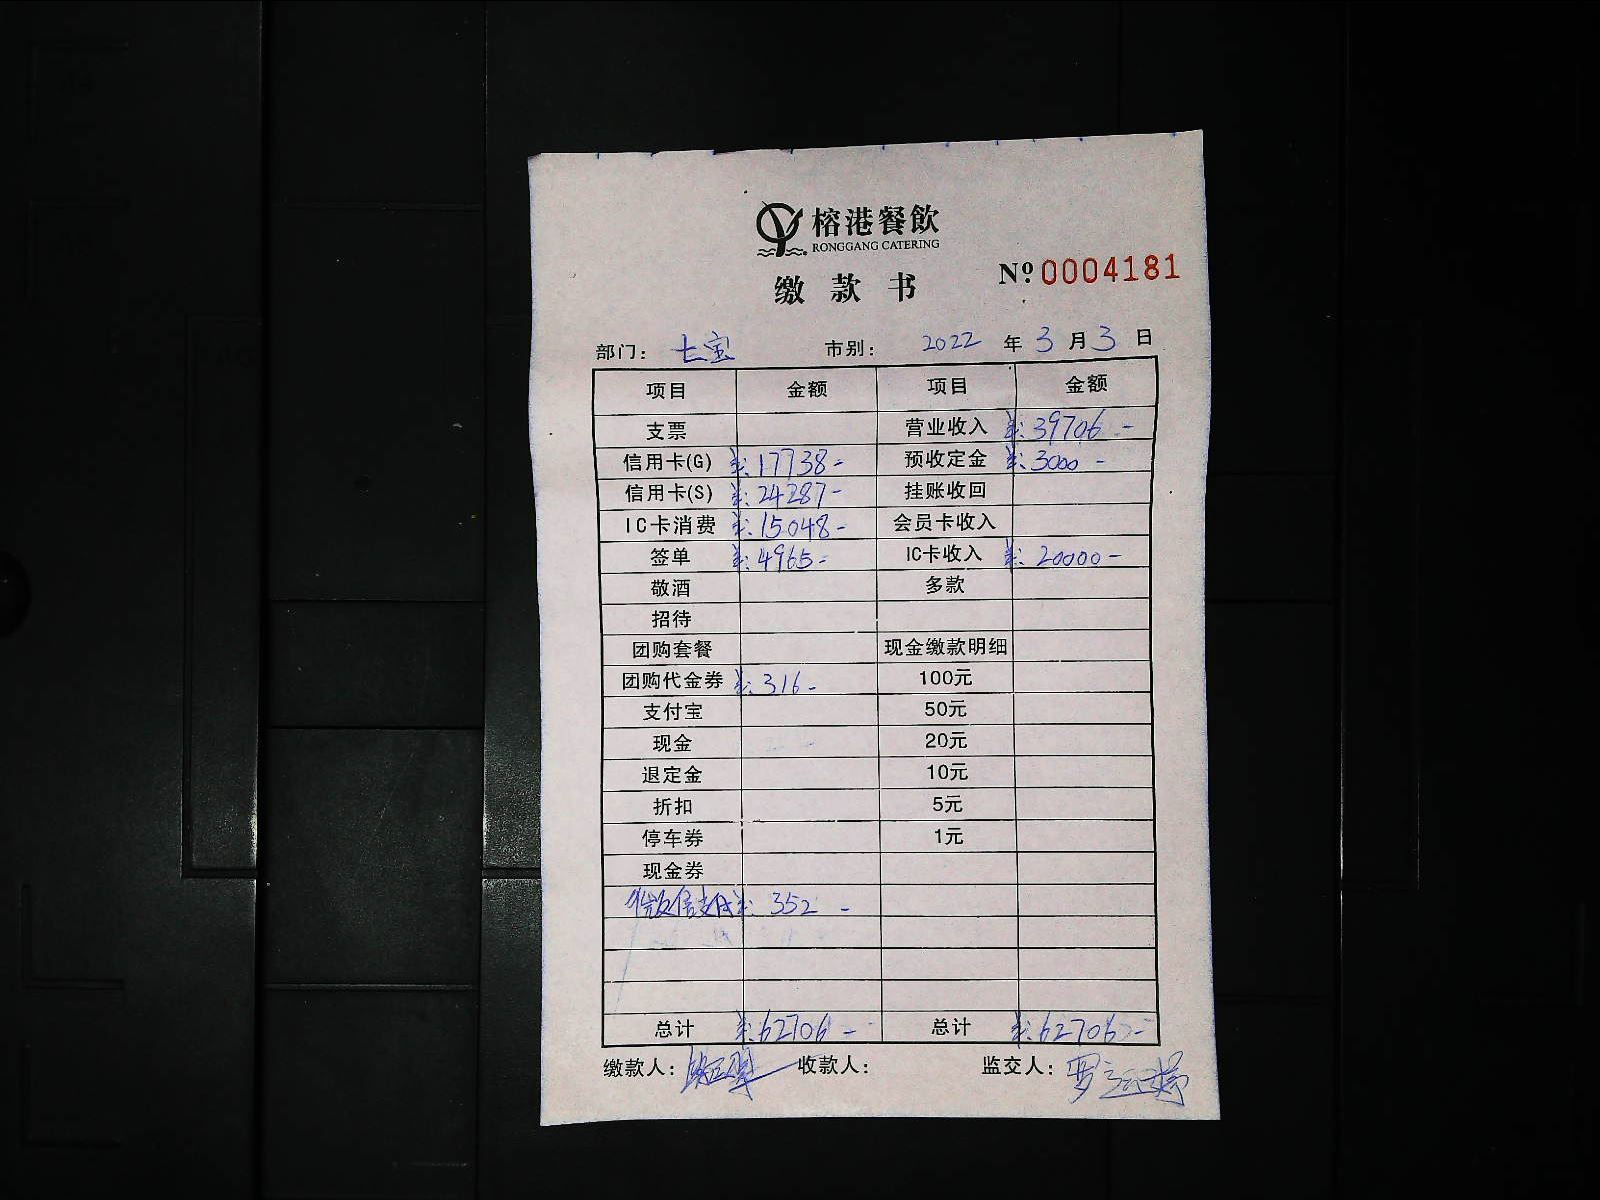 榕港餐飲
RONGGANG CATERING
缴款书 Nº 0004181
部门: 七宝 市别: 2022 年 3 月 3 日
项目 金额 项目 金额
支票 营业收入 ¥:39706.-
信用卡(G) ¥:17738- 预收定金 ¥:3000-
信用卡(S) ¥:24287- 挂账收回
IC卡消费 ¥:15048- 会员卡收入
签单 ¥:4965- IC卡收入 ¥:20000-
敬酒 多款
招待
团购套餐 现金缴款明细
团购代金券 ¥:316- 100元
支付宝 50元
现金 20元
退定金 10元
折扣 5元
停车券 1元
现金券
微信支付 ¥:352-
总计 ¥:62706- 总计 ¥:62706-
缴款人: 收款人: 监交人: